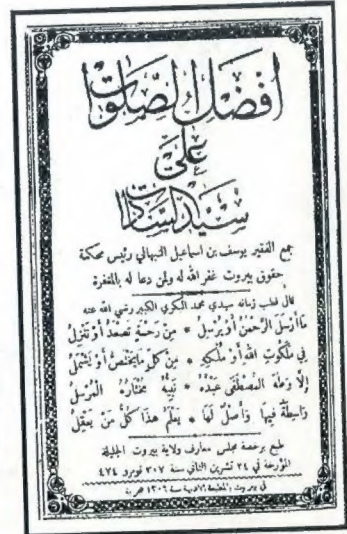 أفضل الصلوات
على
سيد السادات
جمع الفقير يوسف بن اسماعيل النبهاني رئيس محكمة
حقوق بيروت غفر الله له ولمن دعا له بالمغفرة
قال قطب زمانه سيدي محمد البكري الكبير رضي الله عنه
ما أرسل الرحمن أو يرسل * من رحمة تصعد أو تنزل
في ملكوت الله أو ملكه * من كل ما يختص أو يشمل
إلا وطه المصطفى عبده * نبيه مختاره المرسل
واسطة فيها وأصل لها * يعلم هذا كل من يعقل
طبع برخصة مجلس معارف ولاية بيروت الجليلة
المؤرخة في ٢٤ تشرين الثاني سنة ٣٠٧ نومرو ٤٧٤
في بيروت بالمطبعة الادبية سنة ١٣٠٩ هجرية